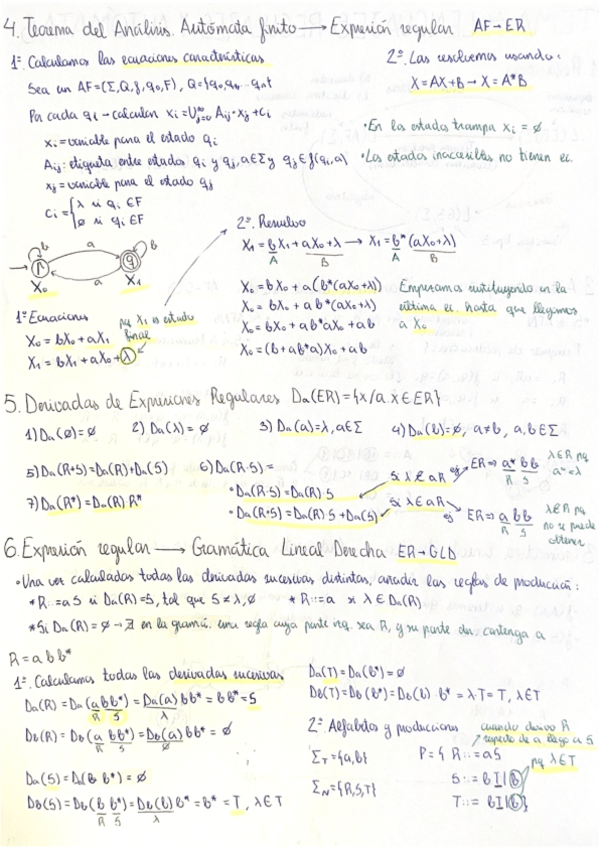 4. Teorema del Análisis. Autómata finito → Expresión regular AF→ER
1º. Calculamos las ecuaciones características
Sea un AF=(Σ,Q,f,q₀,F), Q={q₀,q₁...qₙ}
Por cada qᵢ → calculan xᵢ=∪ⁿⱼ₌₀ Aᵢⱼ·xⱼ+cᵢ
xᵢ = variable para el estado qᵢ
Aᵢⱼ: etiqueta entre estados qᵢ y qⱼ, a∈Σ y qⱼ∈f(qᵢ,a)
xⱼ = variable para el estado qⱼ
cᵢ = { λ si qᵢ∈F
∅ si qᵢ∉F
2º. Las resolvemos usando:
X=AX+B → X=A*B
• En los estados trampa xᵢ = ∅
• Los estados inaccesibles no tienen ec.
b a b
P q
a
X₀ X₁
1º Ecuaciones
X₀ = bX₀ + aX₁
X₁ = bX₁ + aX₀ + λ
pq X₁ es estado final
2º. Resuelvo
X₁ = bX₁ + aX₀+λ → X₁ = b*(aX₀+λ)
A B A B
X₀ = bX₀ + a(b*(aX₀+λ))
X₀ = bX₀ + ab*(aX₀+λ)
X₀ = bX₀ + ab*aX₀ + ab
X₀ = (b+ab*a)X₀ + ab
Empezamos sustituyendo en la
última ec. hasta que llegamos
a X₀
5. Derivadas de Expresiones Regulares Da(ER)={x/a.x∈ER}
1) Da(∅)=∅ 2) Da(λ) = ∅ 3) Da(a)=λ, a∈Σ 4) Da(b)=∅, a≠b, a,b∈Σ
5) Da(R+S)=Da(R)+Da(S) 6) Da(R·S) =
7) Da(R*) = Da(R)·R*
• Da(R·S) = Da(R)·S Si λ∉aR ej ER⇒ a* b b λ∈R pq a*=λ
R S
• Da(R·S) = Da(R)·S + Da(S) Si λ∈aR ej ER⇒ a b b λ∉R pq no se puede obtener
R S
6. Expresión regular → Gramática Lineal Derecha ER→GLD
• Una vez calculadas todas las derivadas sucesivas distintas, añadir las reglas de producción:
* R::=aS si Da(R)=S, tal que S≠λ,∅ * R::=a si λ∈Da(R)
* Si Da(R) = ∅ → ∄ en la gramá. una regla cuya parte izq. sea R, y su parte der. contenga a
R = abb*
1º. Calculamos todas las derivadas sucesivas
Da(R) = Da(abb*) = Da(a)bb* = bb* = S
R S λ
Db(R) = Db(a bb*) = Db(a)bb* = ∅
R S ∅
Da(S) = Da(b b*) = ∅
Db(S) = Db(b b*) = Db(b)b* = b* = T, λ∈T
R S λ
Da(T) = Da(b*) = ∅
Db(T) = Db(b*) = Db(b)·b* = λ·T = T, λ∈T
2º. Alfabetos y producciones
Σ_T = {a,b} P = { R::=aS
Σ_N = {R,S,T} S::= bT|b
T::= bT|b
cuando derivo R
respecto de a llego a S
pq λ∈T